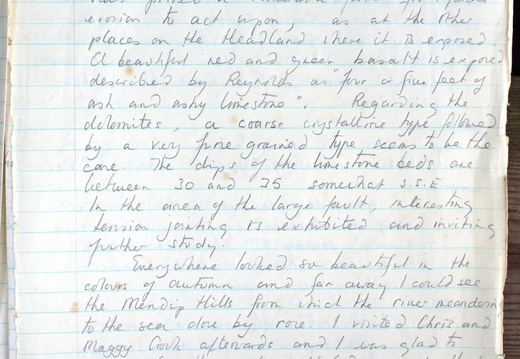 erosion to act upon, as at the other
places on the Headland where it is exposed.
A beautiful red and green basalt is exposed
described by Reynolds as "four a five feet of
ash and ashy limestone". Regarding the
dolomites, a coarse crystalline type followed
by a very fine grained type seems to be the
case. The dips of the limestone beds are
between 30 and 35 somewhat S.S.E
In the area of the large fault, interesting
tension jointing is exhibited and inviting
further study.
Everywhere looked so beautiful in the
colours of autumn and far away I could see
the Mendip Hills from which the river meanders
to the sea close by rose. I visited Chris and
Maggy afterwards and I was glad to